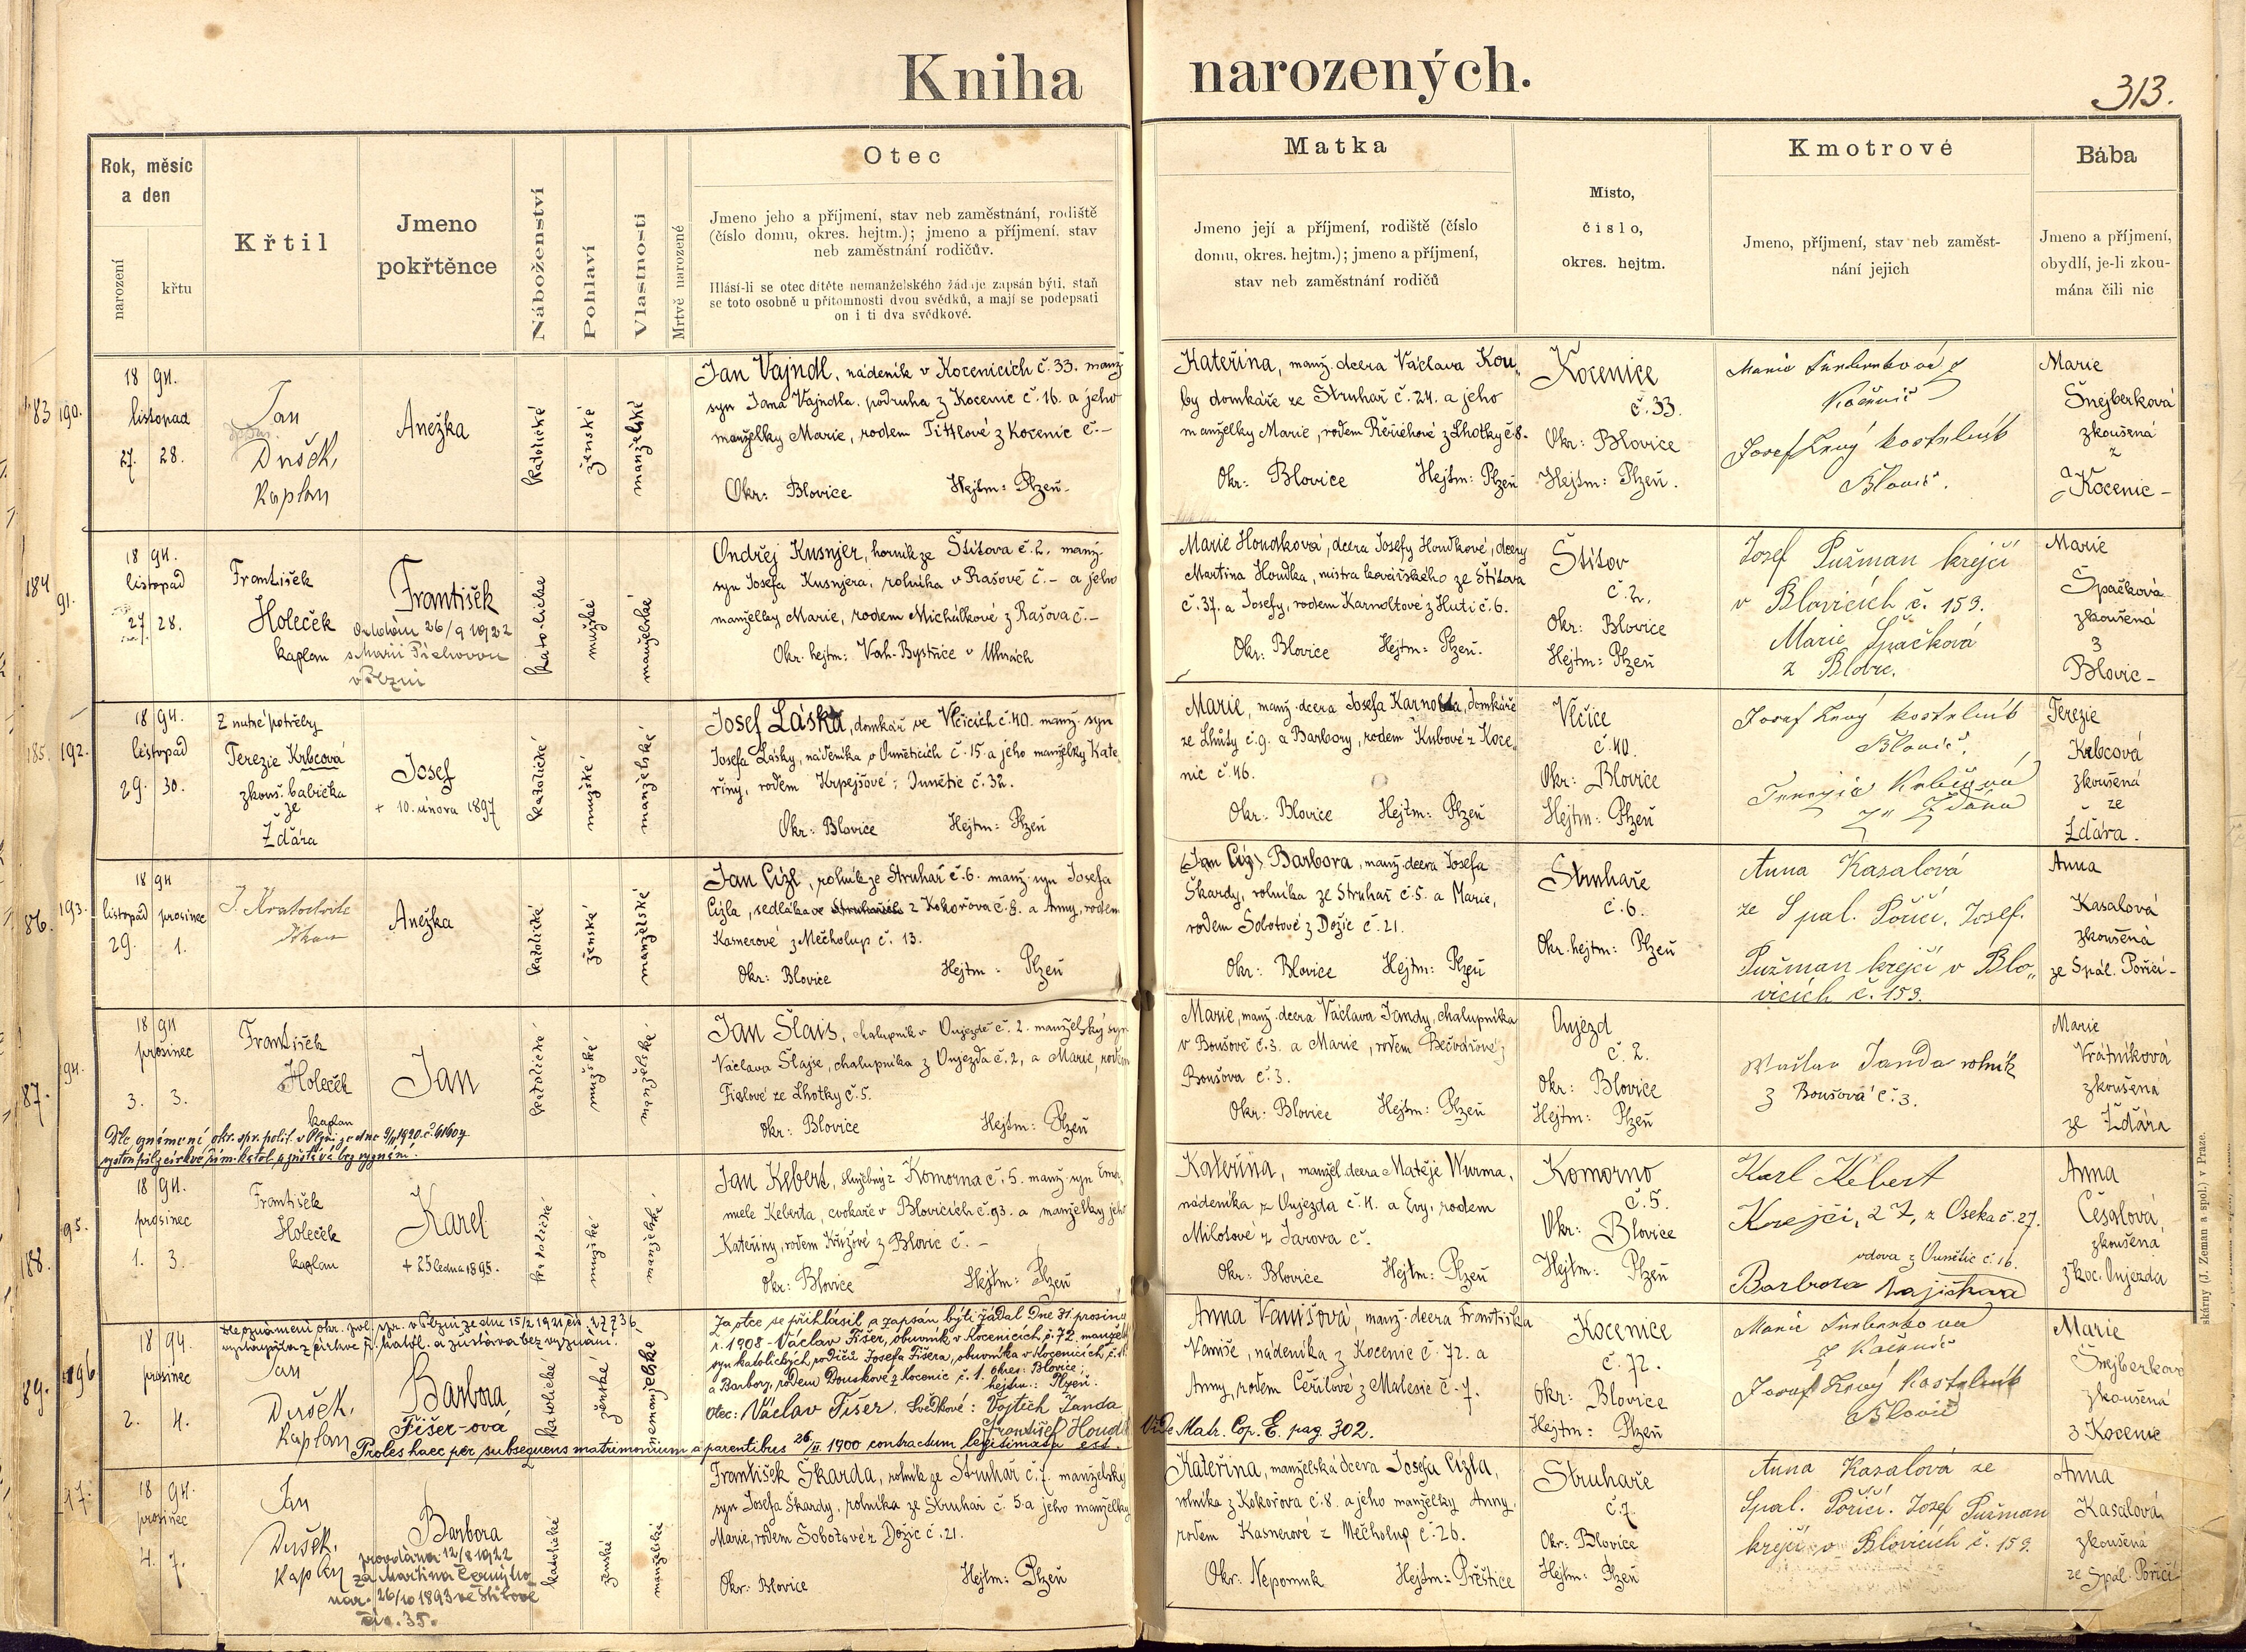 Kniha narozených.
313.
Rok, měsíc
a den
narození
křtu
Křtil
Jmeno
pokřtěnce
Náboženství
Pohlaví
Vlastnosti
Mrtvě narozené
Otec
Jmeno jeho a příjmení, stav neb zaměstnání, rodiště
(číslo domu, okres. hejtm.); jmeno a příjmení. stav
neb zaměstnání rodičův.
Hlásí-li se otec dítěte nemanželského žádaje zapsán býti, staň
se toto osobně u přítomnosti dvou svědků, a mají se podepsati
on i ti dva svědkové.
Matka
Jmeno její a příjmení, rodiště (číslo
domu, okres. hejtm.); jmeno a příjmení,
stav neb zaměstnání rodičů
Místo,
číslo,
okres. hejtm.
Kmotrové
Jmeno, příjmení, stav neb zaměst-
nání jejich
Bába
Jmeno a příjmení,
obydlí, je-li zkou-
mána čili nic
183 190.
18 94.
listopad
27. 28.
Jan
Dušek,
Kaplan
Anežka
katolické
ženské
manželské
Jan Vajndl, nádeník v Kocenicích č. 33. manž.
syn Jana Vajndla, podruha z Kocenic č. 16. a jeho
manželky Marie, rodem Tittlové z Kocenic č. –
Okr: Blovice Hejtm: Plzeň
Kateřina, manž. dcera Václava Kou„
by domkáře ze Struhař č. 24. a jeho
manželky Marie, rodem Řeřichové z Lhotky č. 8.
Okr: Blovice Hejtm: Plzeň
Kocenice
č. 33.
Okr: Blovice
Hejtm: Plzeň.
Marie
Josef kostelník
Blovic.
Marie
Šnejberková
zkoušená
z
Kocenic –
184 91.
18 94.
listopad
27. 28.
František
Holeček
kaplan
František
26/9 1922
v Plzni
katolické
mužské
manželské
Ondřej Kusnjer, horník ze Štítova č. 2. manž.
syn Josefa Kusnjera, rolníka v Rašově č. – a jeho
manželky Marie, rodem Michálkové z Rašova č. –
Okr. hejtm: Vah-Bystřice v Uhrách
Marie Houdková, dcera Josefy Houdkové, dcery
Martina Houdka, mistra kovářského ze Štítova
č. 37. a Josefy, rodem Karnoltové z Huti č. 6.
Okr: Blovice Hejtm: Plzeň.
Štítov
č. 2.
Okr: Blovice
Hejtm: Plzeň
Josef Pužman krejčí
v Blovicích č. 159.
Marie Špačková
z Blovic.
Marie
Špačková
zkoušená
z
Blovic –
185. 192.
18 94.
listopad
29. 30.
Z nutné potřeby
Terezie Krbcová
zkouš. babička
ze
Žďára
Josef
+ 10. února 1897
katolické
mužské
manželské
Josef Láska, domkář ve Vlčicích č. 40. manž. syn
Josefa Lásky, nádeníka v Ouněticích č. 15. a jeho manželky Kate„
řiny, rodem Krpejšové z Ounětic č. 32.
Okr: Blovice Hejtm: Plzeň
Marie, manž. dcera Josefa Karnolda, domkáře
ze Lhůty č. 9. a Barbory, rodem Kubové z Koce„
nic č. 46.
Okr: Blovice Hejtm: Plzeň
Vlčice
č. 40.
Okr: Blovice
Hejtm: Plzeň
Josef kostelník
Blovic.
Terezie Krbcová
ze Žďára
Terezie
Krbcová
zkoušená
ze
Žďára.
86. 193.
18 94
listopad prosinec
29. 1.
Anežka
katolické
ženské
manželské
Jan Cízl, rolník ze Struhař č. 6. manž. syn Josefa
Cízla, sedláka ve z Kokořova č. 8. a Anny, rodem
Kasnerové z Měcholup č. 13.
Okr: Blovice Hejtm: Plzeň
Barbora, manž. dcera Josefa
Škardy, rolníka ze Struhař č. 5. a Marie,
rodem Sobotové z Dožic č. 21.
Okr: Blovice Hejtm: Plzeň
Struhaře
č. 6.
Okr. hejtm: Plzeň
Anna Kasalová
ze Spal. Poříčí. Josef
Pužman krejčí v Blo„
vicích č. 159.
Anna
Kasalová
zkoušená
ze Spál. Poříčí –
87. 94.
18 94
prosinec
3. 3.
František
Holeček
kaplan
Jan
katolické
mužské
manželské
Dle oznámení okr. spr. polit. v Plzni ze dne 9/11 1920. č. 61604
vystoupil z církve řím. katol. a zůstává bez vyznání.
Jan Šlais, chalupník v Oujezdě č. 2. manželský syn
Václava Šlajse, chalupníka z Oujezda č. 2, a Marie, rodem
Fialové ze Lhotky č. 5.
Okr: Blovice Hejtm: Plzeň
Marie, manž. dcera Václava Jandy, chalupníka
v Boušově č. 3. a Marie, rodem Bečvářové z
Boušova č. 3.
Okr: Blovice Hejtm: Plzeň
Oujezd
č. 2.
Okr: Blovice
Hejtm: Plzeň
Janda rolník
z Boušová č. 3.
Marie
Vrátníková
zkoušená
ze Žďára
188. 95.
18 94.
prosinec
1. 3.
František
Holeček
kaplan
Karel
+ 25 ledna 1895.
katolické
mužské
manželské
Jan Kebert, služebný z Komorna č. 5. manž. syn Ema„
nuele Keberta, cvokaře v Blovicích č. 93. a manželky jeho
Kateřiny, rodem Křížové z Blovic č. –
Okr: Blovice Hejtm: Plzeň
Kateřina, manžel. dcera Matěje Wurma,
nádeníka z Oujezda č. 4. a Evy, rodem
Milotové z Jarova č.
Okr: Blovice Hejtm: Plzeň
Komorno
č. 5.
Okr: Blovice
Hejtm: Plzeň
Karl Kebert
Krejčí, z Oseka č. 27.
vdova z Ounětic č. 16.
Barbora
Anna
Češalová,
zkoušená
z koc. Oujezda
89. 196.
18 94.
prosinec
2. 4.
Dle oznámení okr. pol. spr. v Plzni ze dne 15/2 1921 čís. 27736
vystoupila z církve ř. katol. a zůstává bez vyznání.
Jan
Dušek,
Kaplan
Barbora
Fišer-ová
katolické
ženské
nemanželské
Za otce se přihlásil a zapsán býti žádal dne 31 prosince
r. 1908 – Václav Fišer, obuvník v Kocenicích č. 72. manžel.
syn katolických rodičů Josefa Fišera, obuvníka v Kocenicích č.
a Barbory, rodem Douskové z Kocenic č. 1. okres: Blovice;
hejtm.: Plzeň.
Otec: Václav Fišer. Svědkové: Vojtěch Janda
František Houdek
Proles haec per subsequens matrimonium a parentibus 26/II. 1900 contractum legitimata est. Vide Matr. Cop. E. pag. 302.
Anna Vanišová, manž. dcera Františka
Vaniše, nádeníka z Kocenic č. 72. a
Anny, rodem Čeřilové z Malesic č. 7.
Kocenice
č. 72.
Okr: Blovice
Hejtm: Plzeň
Marie
Josef kostelník
Blovic
Marie
Šnejberková
zkoušená
z Kocenic
97.
18 94.
prosinec
4. 7.
Jan
Dušek,
Kaplan
Barbora
provdána 12/8 1922
za Martina Černýho
nar. 26/10 1893 ve Štítově
čís. 35.
katolické
ženské
manželské
František Škarda, rolník ze Struhař č. 7. manželský
syn Josefa Škardy, rolníka ze Struhař č. 5. a jeho manželky
Marie, rodem Sobotové z Dožic č. 21.
Okr: Blovice Hejtm: Plzeň
Kateřina, manželská dcera Josefa Cízla,
rolníka z Kokořova č. 8. a jeho manželky Anny,
rodem Kasnerové z Měcholup č. 26.
Okr: Nepomuk Hejtm: Přeštice
Struhaře
č. 7.
Okr: Blovice
Hejtm: Plzeň
Anna Kasalová ze
Spal. Poříčí. Josef Pužman
krejčí v Blovicích č. 159.
Anna
Kasalová
zkoušená
ze Spál. Poříčí
skárny (J. Zeman a spol.) v Praze.